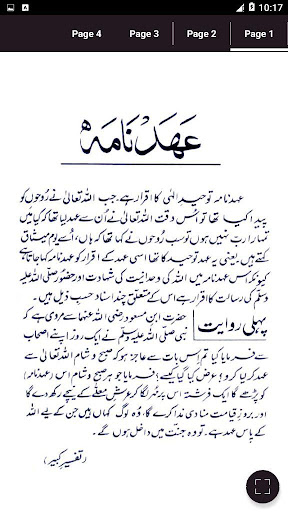 10:17
Page 4 Page 3 Page 2 Page 1
عہد نامہ
عہد نامہ توحید الٰہی کا اقرار ہے۔ جب اللہ تعالیٰ نے رُوحوں کو
پیدا کیا تھا تو اُس وقت اللہ تعالیٰ نے اُن سے عہد لیا تھا کہ کیا میں
تمہارا ربّ نہیں ہوں تو سب رُوحوں نے کہا تھا کہ ہاں، اُسے یوم میثاق
کہتے ہیں، یعنی یہ عہد توحید کا تھا اسی عہد کے اقرار کو عہد نامہ کہا جاتا ہے
کیونکہ اس عہد نامہ میں اللہ کی وحدانیت کی شہادت اور حضور صلی اللہ علیہ
وسلم کی رسالت کا اقرار ہے اس کے متعلق چند اسناد حسب ذیل ہیں۔
پہلی روایت
حضرت ابن مسعود رضی اللہ عنہما سے مروی ہے کہ
نبی صلی اللہ علیہ وسلم نے ایک روز اپنے اصحاب
سے فرمایا کیا تم اس بات سے عاجز ہو کہ صبح و شام اللہ تعالیٰ سے
عہد کر لیا کرو؟ عرض کیا گیا کیسے؟ فرمایا جو ہر صبح و شام اس (عہد نامہ)
کو پڑھے گا ایک فرشتہ اس پر مہر لگا کر عرش معلّٰی کے نیچے رکھ دے گا
اور بروز قیامت منادی ندا کرے گا، وہ لوگ کہاں ہیں جن کے لیے اللہ
کے پاس عہد ہے۔ تو وہ جنت میں داخل ہوں گے۔
(تفسیر کبیر)